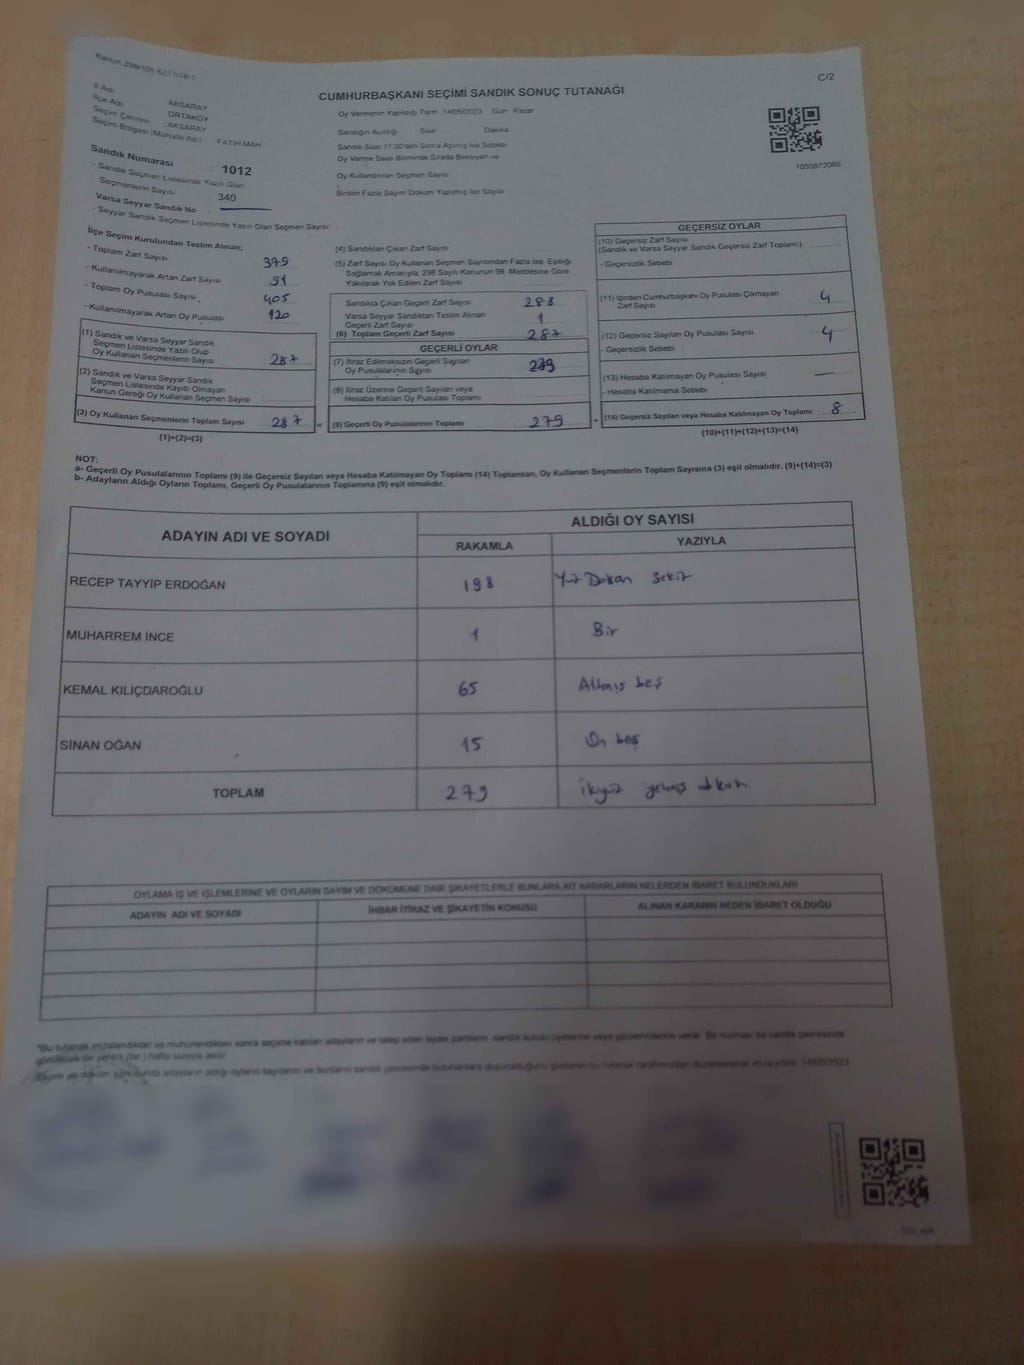 Kanun 298/105-6271/18-1
C/2
CUMHURBAŞKANI SEÇİMİ SANDIK SONUÇ TUTANAĞI
İl Adı
AKSARAY
İlçe Adı
ORTAKÖY
Seçim Çevresi : AKSARAY
Seçim Bölgesi (Mahalle Adı) FATİH MAH
Oy Vermenin Yapıldığı Tarih :14/05/2023 Gün : Pazar
Sandığın Açıldığı Saat Dakika
Sandık Saat 17.00'den Sonra Açılmış İse Sebebi
Oy Verme Saati Bitiminde Sırada Bekleyen ve
Oy Kullandırılan Seçmen Sayısı
Birden Fazla Sayım Döküm Yapılmış İse Sayısı
1093872066
Sandık Numarası : 1012
- Sandık Seçmen Listesinde Yazılı Olan
Seçmenlerin Sayısı : 340
Varsa Seyyar Sandık No
- Seyyar Sandık Seçmen Listesinde Yazılı Olan Seçmen Sayısı
İlçe Seçim Kurulundan Teslim Alınan;
- Toplam Zarf Sayısı 379
- Kullanılmayarak Artan Zarf Sayısı 91
- Toplam Oy Pusulası Sayısı 405
- Kullanılmayarak Artan Oy Pusulası 120
(1) Sandık ve Varsa Seyyar Sandık
Seçmen Listesinde Yazılı Olup
Oy Kullanan Seçmenlerin Sayısı 287
(2) Sandık ve Varsa Seyyar Sandık
Seçmen Listesinde Kayıtlı Olmayan
Kanun Gereği Oy Kullanan Seçmen Sayısı
(3) Oy Kullanan Seçmenlerin Toplam Sayısı 287 =
(1)+(2)=(3)
(4) Sandıktan Çıkan Zarf Sayısı
(5) Zarf Sayısı Oy Kullanan Seçmen Sayısından Fazla İse. Eşitliği
Sağlamak Amacıyla; 298 Sayılı Kanunun 98. Maddesine Göre
Yakılarak Yok Edilen Zarf Sayısı
Sandıkta Çıkan Geçerli Zarf Sayısı 288
Varsa Seyyar Sandıktan Teslim Alınan
Geçerli Zarf Sayısı 1
(6) Toplam Geçerli Zarf Sayısı 287
GEÇERLİ OYLAR
(7) İtiraz Edilmeksizin Geçerli Sayılan
Oy Pusulalarının Sayısı 279
(8) İtiraz Üzerine Geçerli Sayılan veya
Hesaba Katılan Oy Pusulası Toplamı
(9) Geçerli Oy Pusulalarının Toplamı 279 +
GEÇERSİZ OYLAR
(10) Geçersiz Zarf Sayısı
(Sandık ve Varsa Seyyar Sandık Geçersiz Zarf Toplamı)
- Geçersizlik Sebebi
(11) İçinden Cumhurbaşkanı Oy Pusulası Çıkmayan
Zarf Sayısı 4
(12) Geçersiz Sayılan Oy Pusulası Sayısı 4
- Geçersizlik Sebebi
(13) Hesaba Katılmayan Oy Pusulası Sayısı —
- Hesaba Katılmama Sebebi
(14) Geçersiz Sayılan veya Hesaba Katılmayan Oy Toplamı : 8
(10)+(11)+(12)+(13)=(14)
NOT:
a- Geçerli Oy Pusulalarının Toplamı (9) ile Geçersiz Sayılan veya Hesaba Katılmayan Oy Toplamı (14) Toplamları, Oy Kullanan Seçmenlerin Toplam Sayısına (3) eşit olmalıdır. (9)+(14)=(3)
b- Adayların Aldığı Oyların Toplamı, Geçerli Oy Pusulalarının Toplamına (9) eşit olmalıdır.
ADAYIN ADI VE SOYADI
ALDIĞI OY SAYISI
RAKAMLA YAZIYLA
RECEP TAYYİP ERDOĞAN 198 Yüz Doksan Sekiz
MUHARREM İNCE 1 Bir
KEMAL KILIÇDAROĞLU 65 Altmış beş
SİNAN OĞAN 15 On beş
TOPLAM 279 ikiyüz yetmiş dokuz
OYLAMA İŞ VE İŞLEMLERİNE VE OYLARIN SAYIM VE DÖKÜMÜNE DAİR ŞİKAYETLERLE BUNLARA AİT KARARLARIN NELERDEN İBARET BULUNDUKLARI
ADAYIN ADI VE SOYADI İHBAR İTİRAZ VE ŞİKAYETİN KONUSU ALINAN KARARIN NEDEN İBARET OLDUĞU
"Bu tutanak imzalandıktan ve mühürlendikten sonra seçime katılan adayların ve talep eden siyasi partilerin sandık kurulu üyelerine veya gözlemcilerine verilir. Bir nüshası da sandık çevresinde
görülecek bir yere (bir) hafta süreyle asılır.
Sayım ve döküm sonucunda adayların aldığı oyların sayılarını ve bunların sandık çevresinde bulunanlara duyurulduğunu gösteren bu tutanak tarafımızdan düzenlenerek imza edildi. 14/05/2023